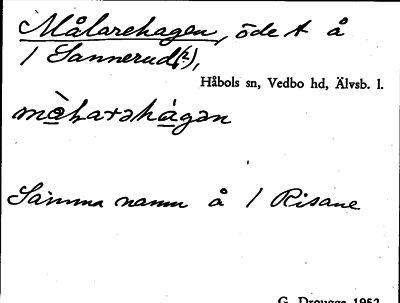 Målarehagen, öde t å
1 Sannerud(2),
Håbols sn, Vedbo hd, Älvsb. l.
Samma namn å 1 Risane
G. Drougge 1952